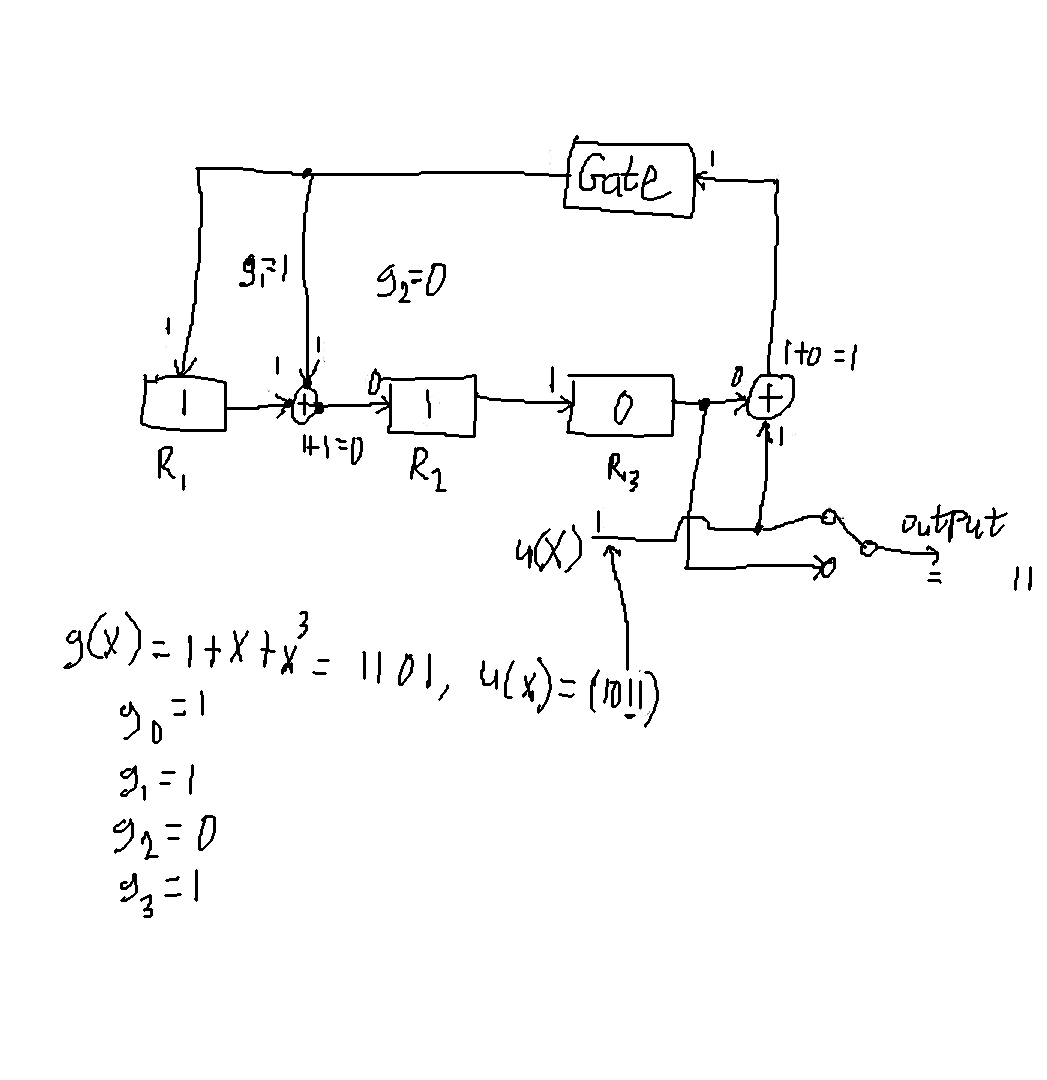 Gate 1
g₁=1 g₂=0
1 1 1 1+0=1
1 0 1 1 0 0 +
1+1=0
R₁ R₂ R₃ 1
u(X) 1 output
= 11
g(X) = 1+X+X³ = 1101, u(X) = (1011)
g₀ = 1
g₁ = 1
g₂ = 0
g₃ = 1